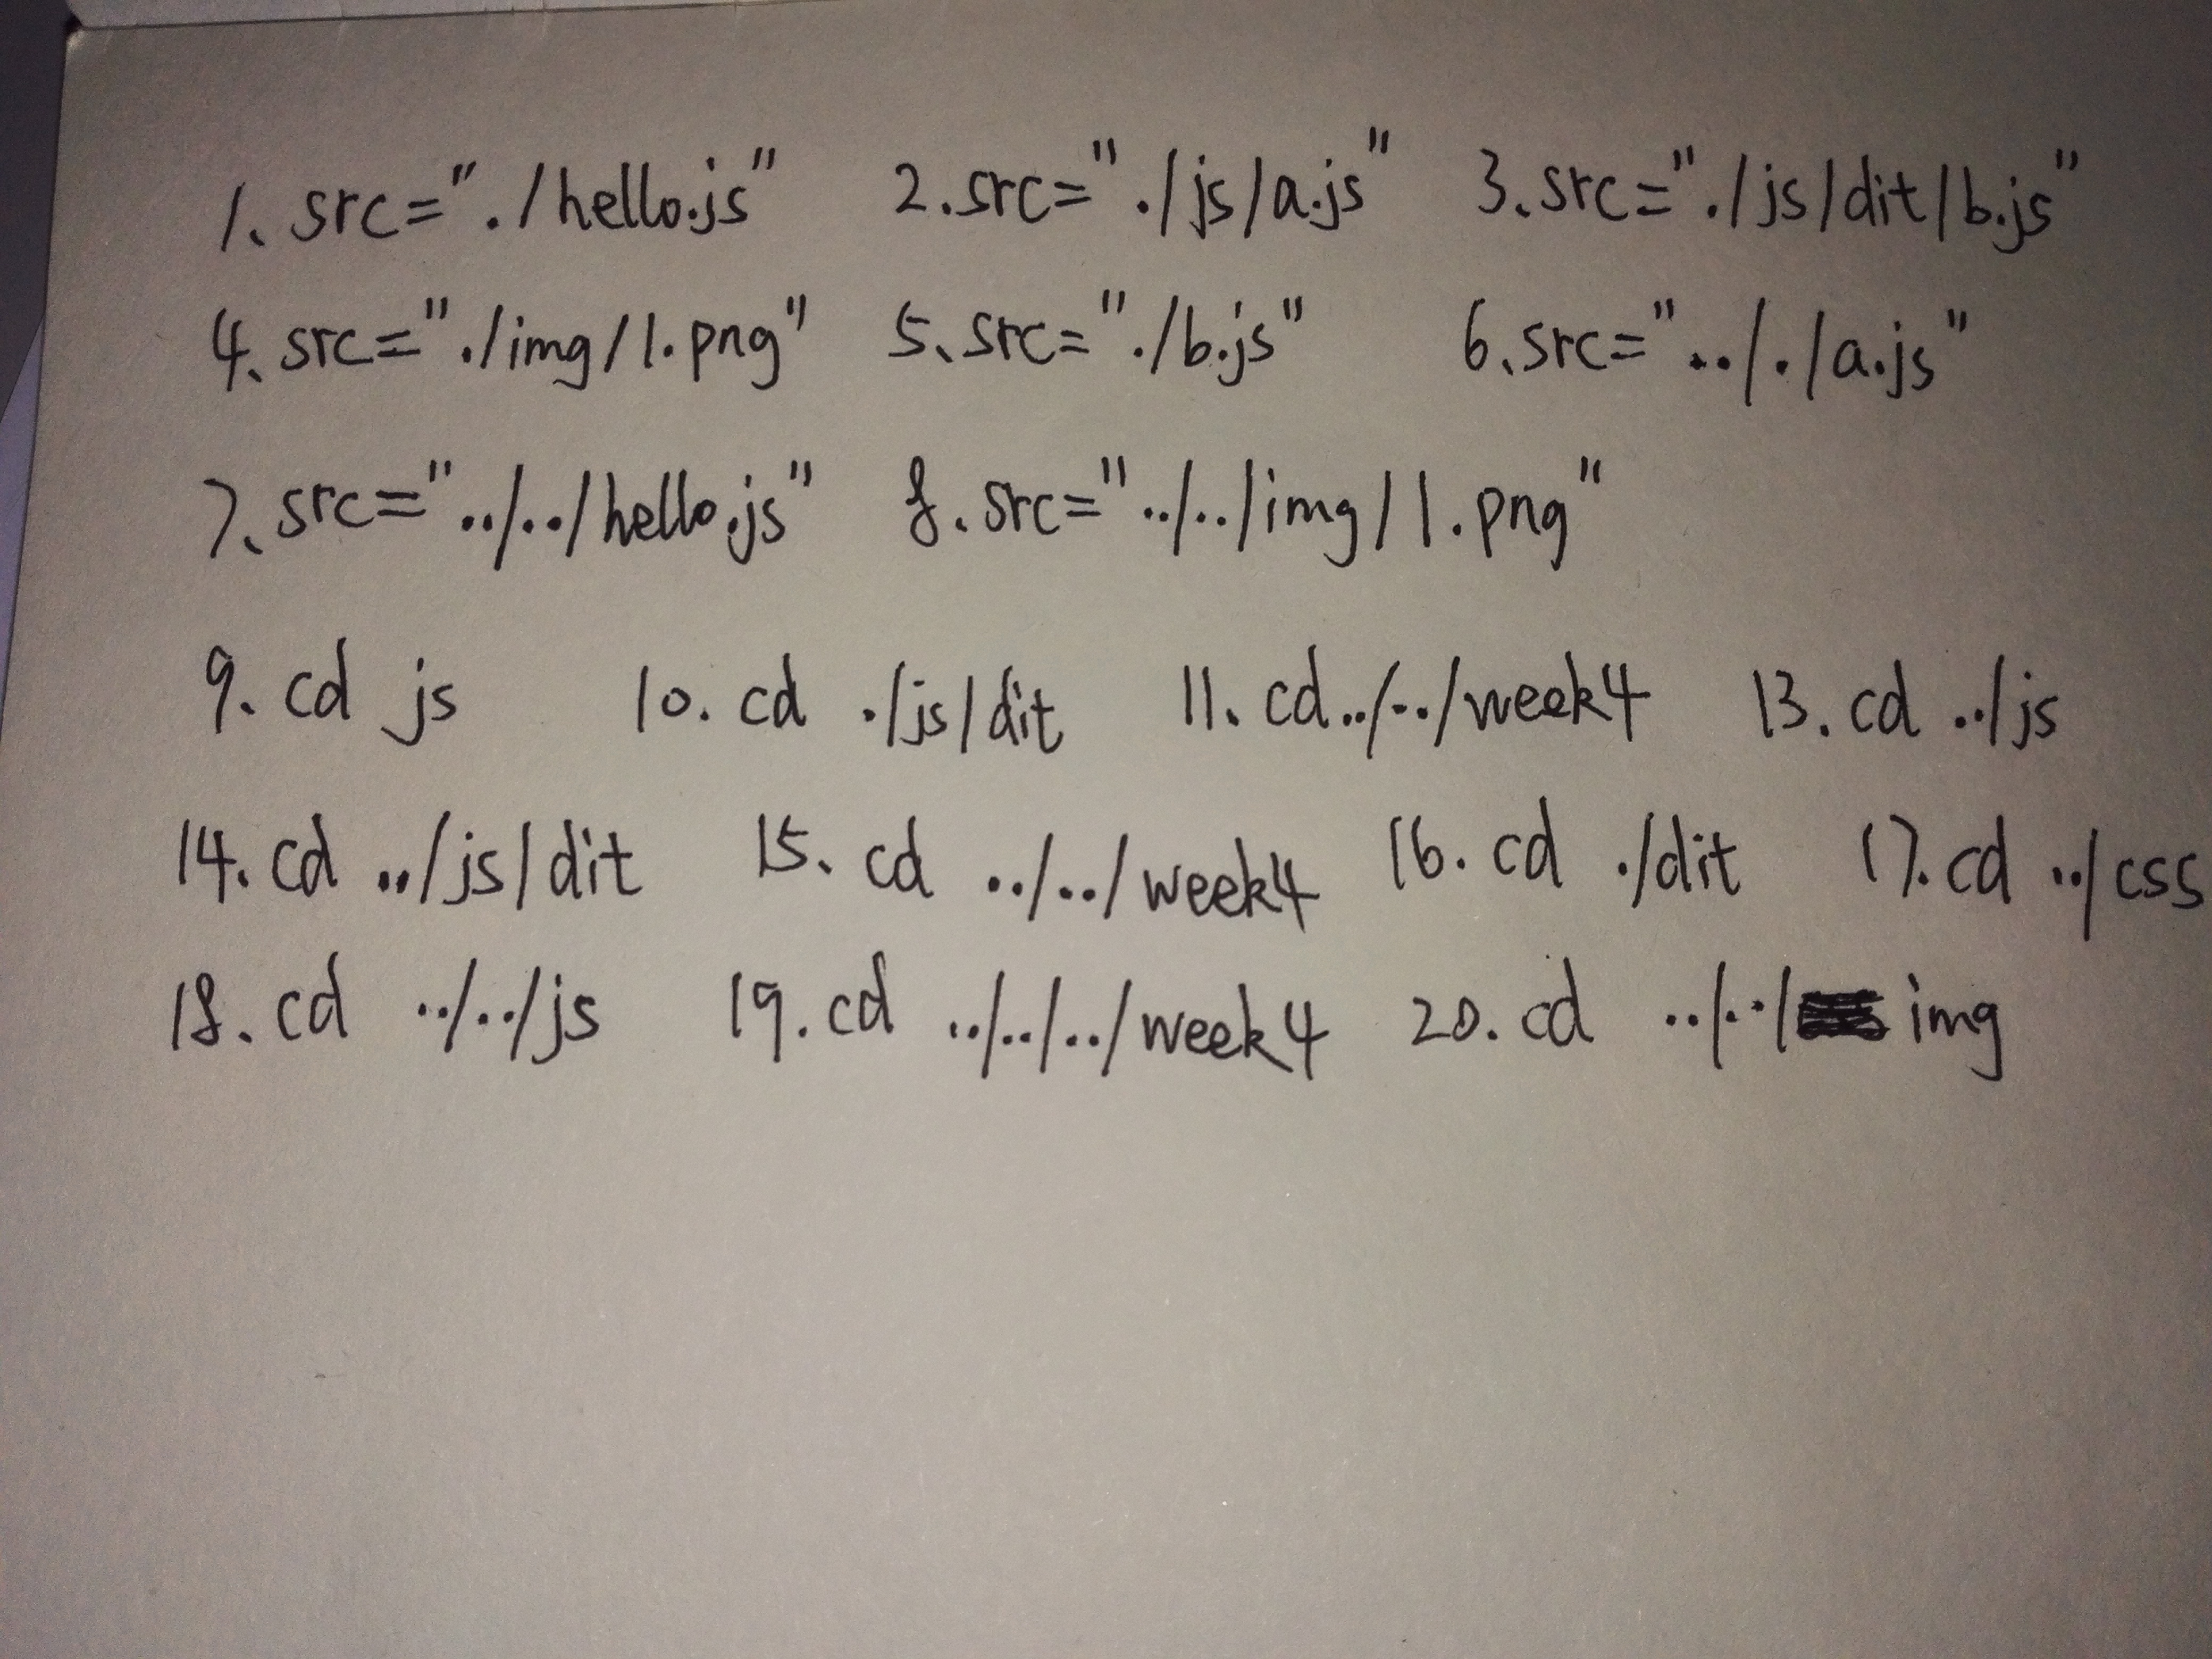 1、src="./hello.js" 2.src="./js/a.js" 3、src="./js/dit/b.js"
4、src="./img/1.png" 5、src="./b.js" 6、src=".././a.js"
7、src="../../hello.js" 8.src="../../img/1.png"
9. cd js 10. cd ./js/dit 11. cd../../week4 13. cd ../js
14. cd ../js/dit 15. cd ../../week4 16. cd ./dit 17. cd ../css
18. cd ../../js 19. cd ../../../week4 20. cd ../../ img